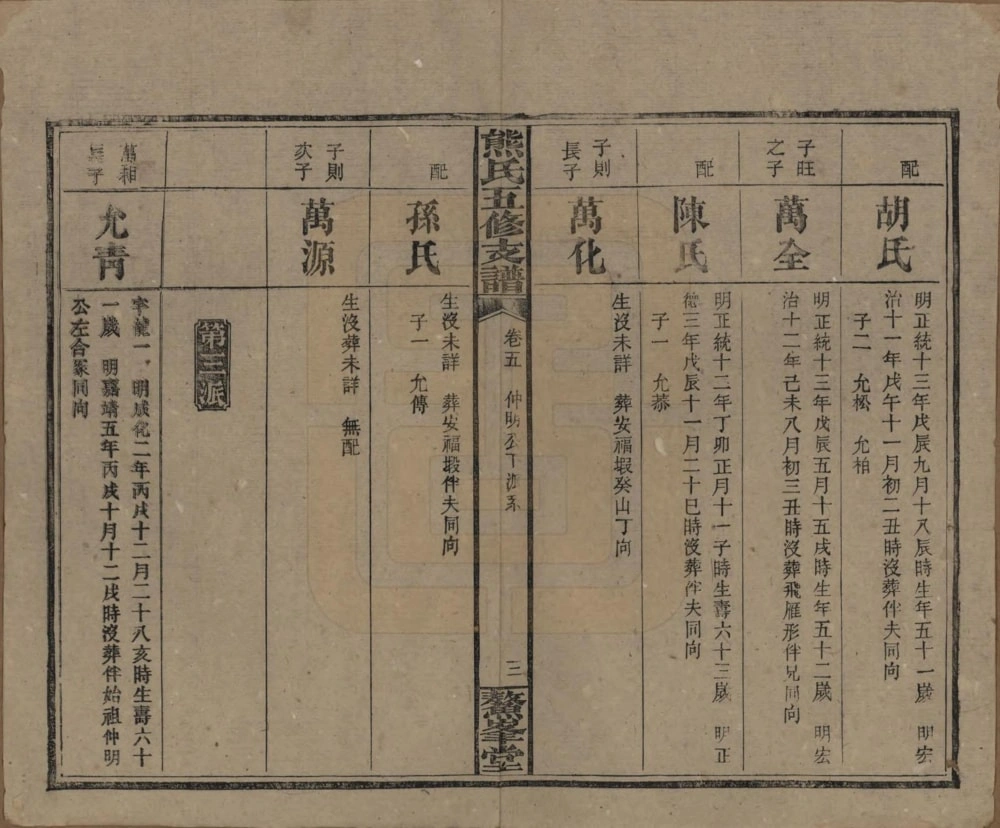 配
胡氏
明正統十三年戊辰九月十八辰時生年五十一歲　明宏
治十一年戊午十一月初二丑時沒葬伴夫同向
子二　允松　允柏
子旺
之子
萬全
明正統十三年戊辰五月十五戌時生年五十二歲　明宏
治十二年己未八月初三丑時沒葬飛雁形伴兄同向
配
陳氏
明正統十二年丁卯正月十一子時生壽六十三歲　明正
德三年戊辰十一月二十巳時沒葬伴夫同向
子一　允恭
子則
長子
萬化
生沒未詳　葬安福塅癸山丁向
熊氏五修支譜
卷五　仲明公下派系
三
鰲魚峯堂
配
孫氏
生沒未詳　葬安福塅伴夫同向
子一　允傳
子則
次子
萬源
生沒葬未詳　無配
第三派
萬和
長子
允青
字龍一　明成化二年丙戌十二月二十八亥時生壽六十
一歲　明嘉靖五年丙戌十月十二戌時沒葬伴始祖仲明
公左合冢同向